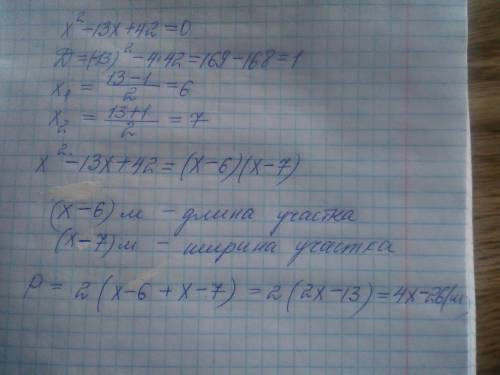 x² - 13x + 42 = 0
D = (-13)² - 4·42 = 169 - 168 = 1
x₁ = (13 - 1)/2 = 6
x₂ = (13 + 1)/2 = 7
x² - 13x + 42 = (x - 6)(x - 7)
(x - 6) м - длина участка
(x - 7) м - ширина участка
P = 2(x - 6 + x - 7) = 2(2x - 13) = 4x - 26(м